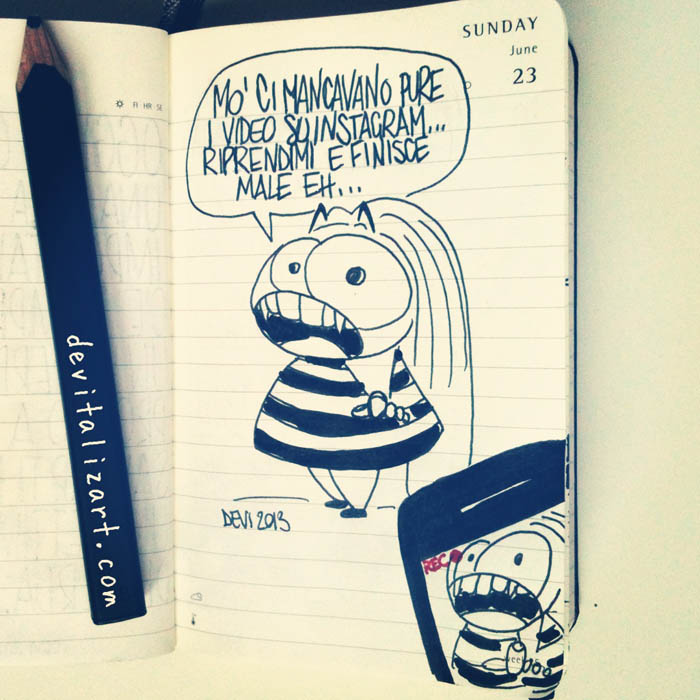 SUNDAY
June
23
FI HR SE
MO' CI MANCAVANO PURE
I VIDEO SU INSTAGRAM...
RIPRENDIMI E FINISCE
MALE EH...
devitalizart.com
DEVI 2013
REC